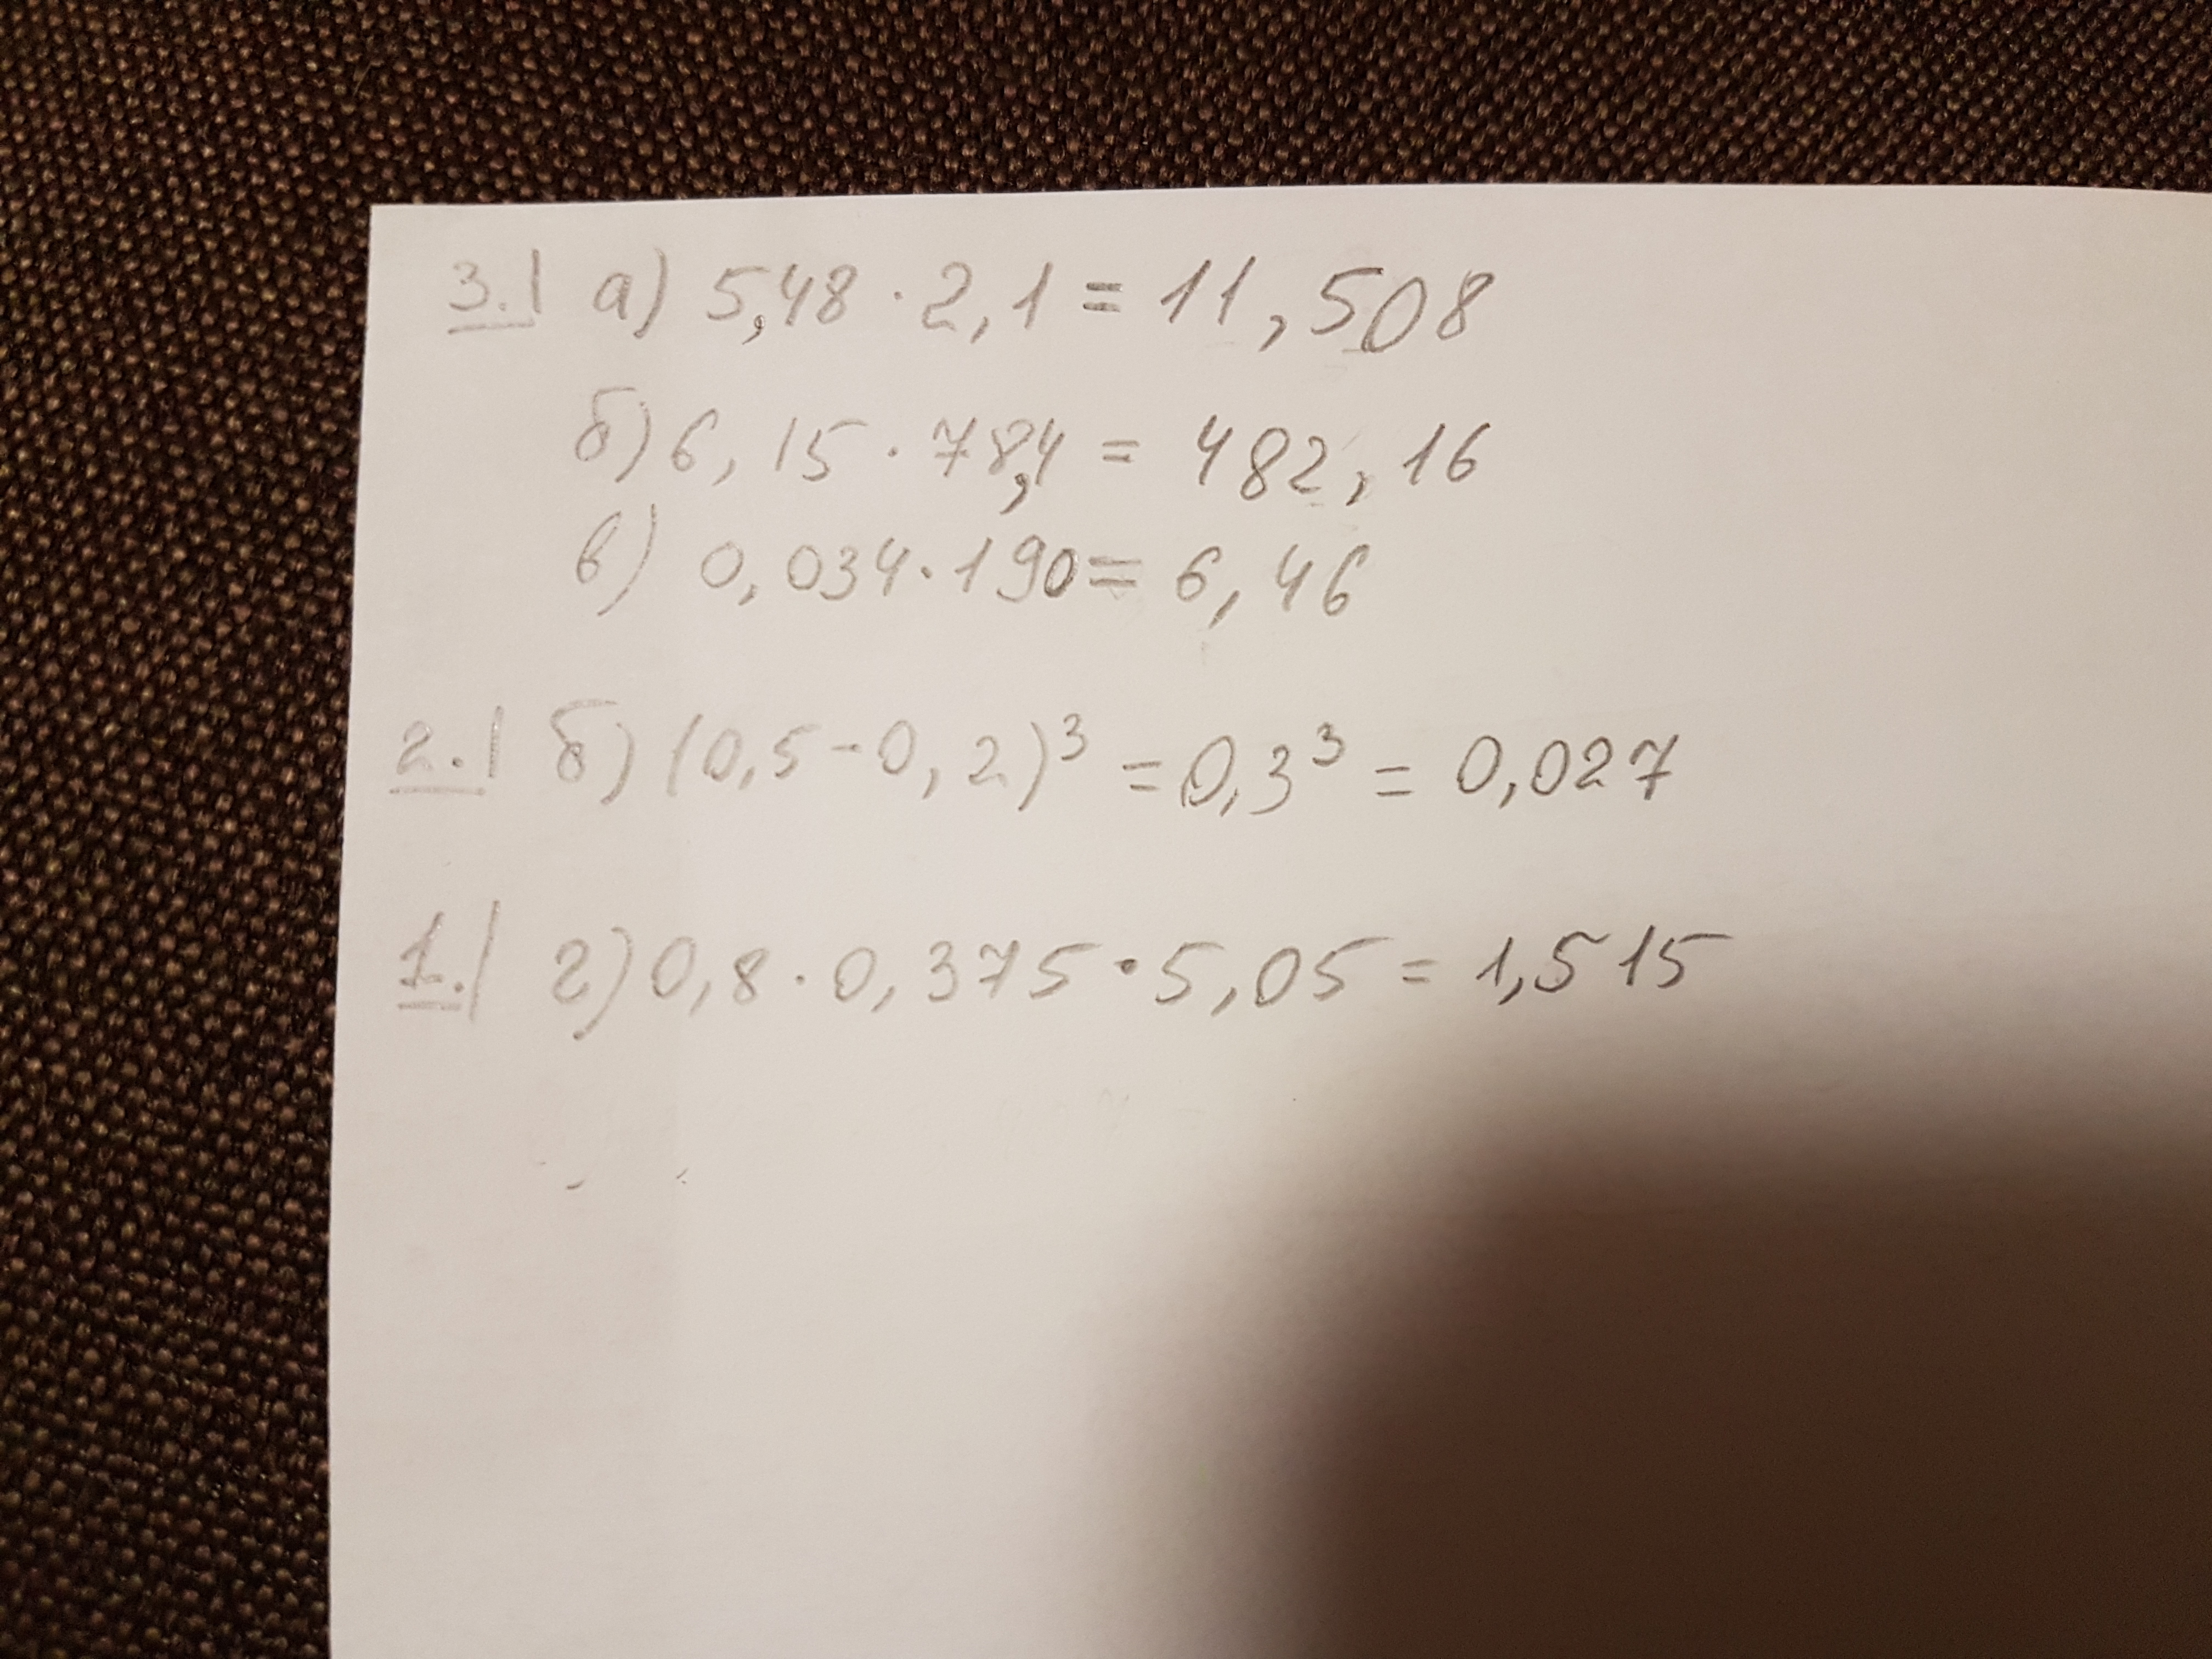 3. а) 5,48 · 2,1 = 11,508
б) 6,15 · 78,4 = 482,16
в) 0,034 · 190 = 6,46
2. б) (0,5 - 0,2)³ = 0,3³ = 0,027
1. г) 0,8 · 0,375 · 5,05 = 1,515